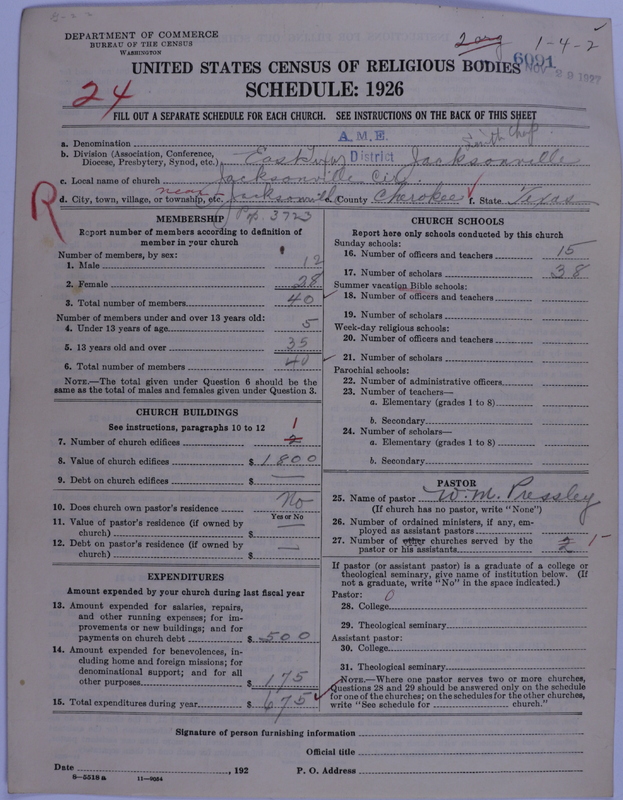 DEPARTMENT OF COMMERCE
BUREAU OF THE CENSUS
WASHINGTON
2 1-4-2
6091
NOV 29 1927
UNITED STATES CENSUS OF RELIGIOUS BODIES
SCHEDULE: 1926
24
FILL OUT A SEPARATE SCHEDULE FOR EACH CHURCH. SEE INSTRUCTIONS ON THE BACK OF THIS SHEET
a. Denomination A.M.E.
b. Division (Association, Conference, Diocese, Presbytery, Synod, etc.) East District Jacksonville
c. Local name of church Jacksonville
d. City, town, village, or township, etc. near Jacksonville e. County Cherokee f. State Texas
R
Pop. 3723
MEMBERSHIP
Report number of members according to definition of
member in your church
Number of members, by sex:
1. Male 12
2. Female 28
3. Total number of members 40
Number of members under and over 13 years old:
4. Under 13 years of age 5
5. 13 years old and over 35
6. Total number of members 40
NOTE.—The total given under Question 6 should be the
same as the total of males and females given under Question 3.
CHURCH BUILDINGS
See instructions, paragraphs 10 to 12
7. Number of church edifices 2 1
8. Value of church edifices $ 1800
9. Debt on church edifices $ —
10. Does church own pastor's residence No
Yes or No
11. Value of pastor's residence (if owned by
church) $ —
12. Debt on pastor's residence (if owned by
church) $ —
EXPENDITURES
Amount expended by your church during last fiscal year
13. Amount expended for salaries, repairs,
and other running expenses; for im-
provements or new buildings; and for
payments on church debt $ 500
14. Amount expended for benevolences, in-
cluding home and foreign missions; for
denominational support; and for all
other purposes $ 175
15. Total expenditures during year $ 675
CHURCH SCHOOLS
Report here only schools conducted by this church
Sunday schools:
16. Number of officers and teachers 15
17. Number of scholars 38
Summer vacation Bible schools:
18. Number of officers and teachers
19. Number of scholars
Week-day religious schools:
20. Number of officers and teachers
21. Number of scholars
Parochial schools:
22. Number of administrative officers
23. Number of teachers—
a. Elementary (grades 1 to 8)
b. Secondary
24. Number of scholars—
a. Elementary (grades 1 to 8)
b. Secondary
PASTOR
25. Name of pastor W. M. Pressley
(If church has no pastor, write "None")
26. Number of ordained ministers, if any, em-
ployed as assistant pastors
27. Number of other churches served by the
pastor or his assistants 2 1
If pastor (or assistant pastor) is a graduate of a college or
theological seminary, give name of institution below. (If
not a graduate, write "No" in the space indicated.)
Pastor: 0
28. College
29. Theological seminary
Assistant pastor:
30. College
31. Theological seminary
NOTE.—Where one pastor serves two or more churches,
Questions 28 and 29 should be answered only on the schedule
for one of the churches; on the schedules for the other churches,
write "See schedule for church."
Signature of person furnishing information
Official title
Date , 192 P. O. Address
8—5518a 11—9054